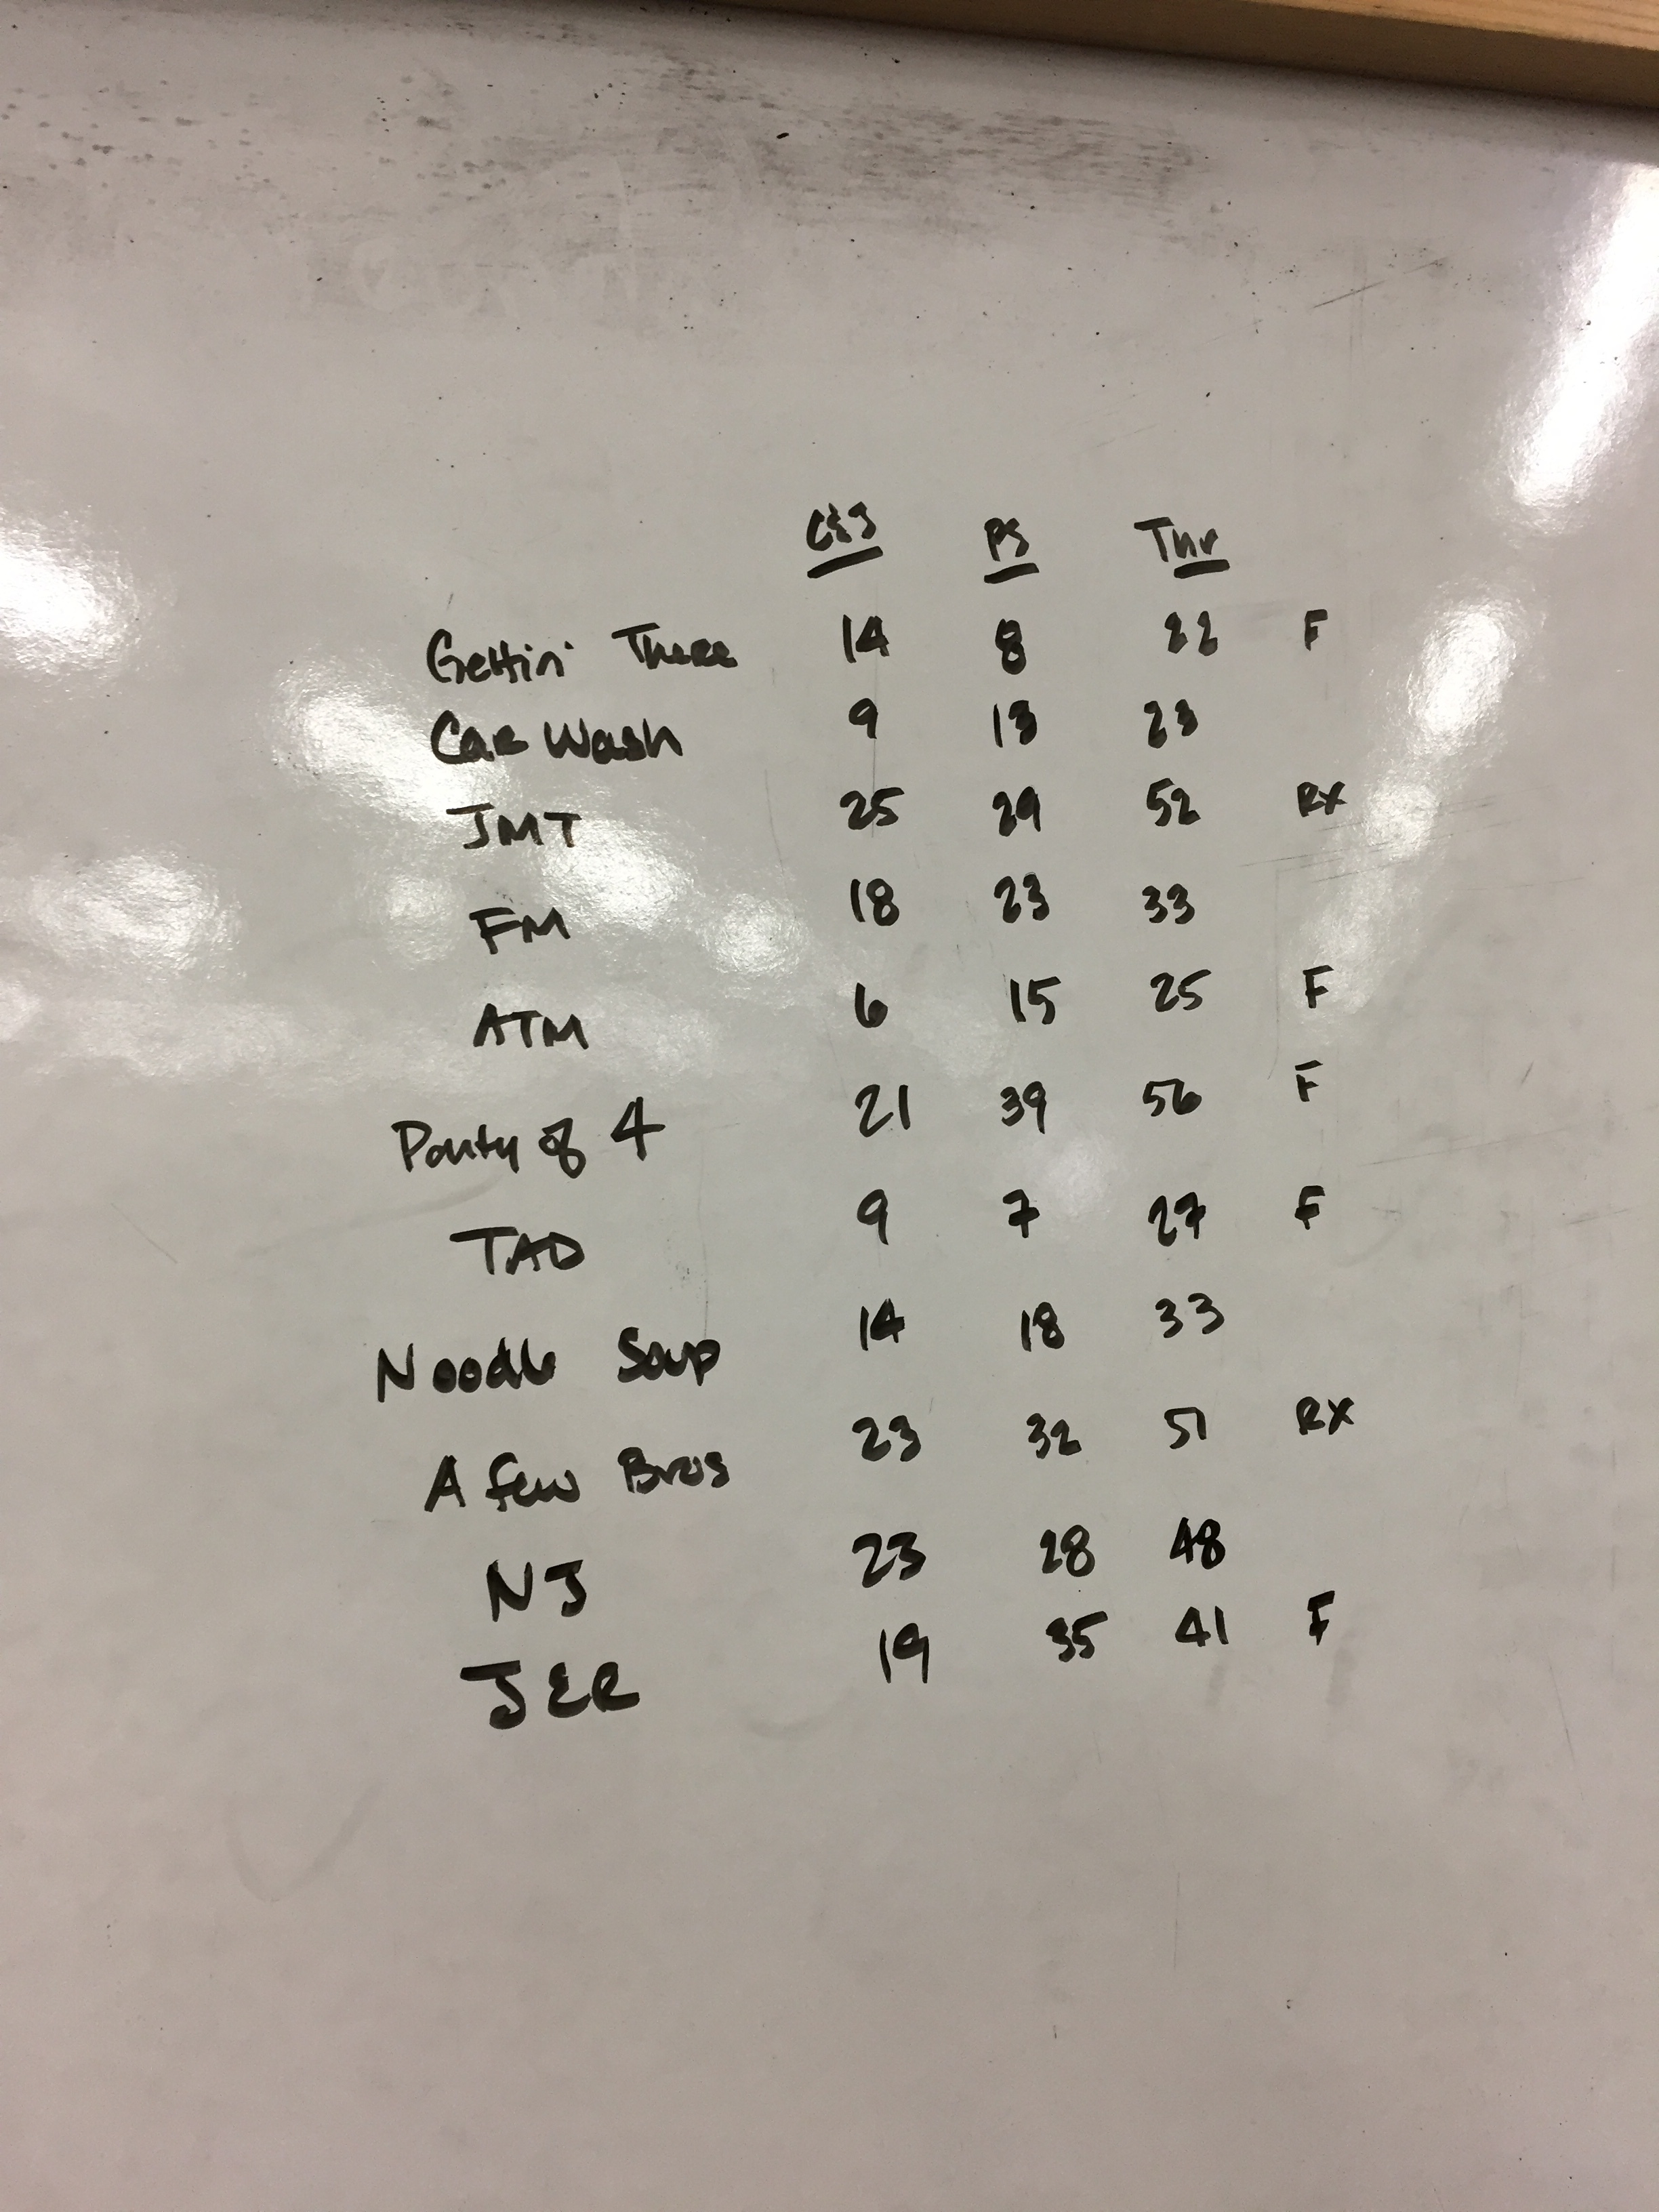 C&J PS Thr
Gettin' There 14 8 22 F
Car Wash 9 13 23
JMT 25 29 52 RX
FM 18 23 33
ATM 6 15 25 F
Party of 4 21 39 56 F
TAD 9 7 27 F
Noodle Soup 14 18 33
A few Bros 23 32 51 RX
NJ 23 28 48
JER 19 35 41 F